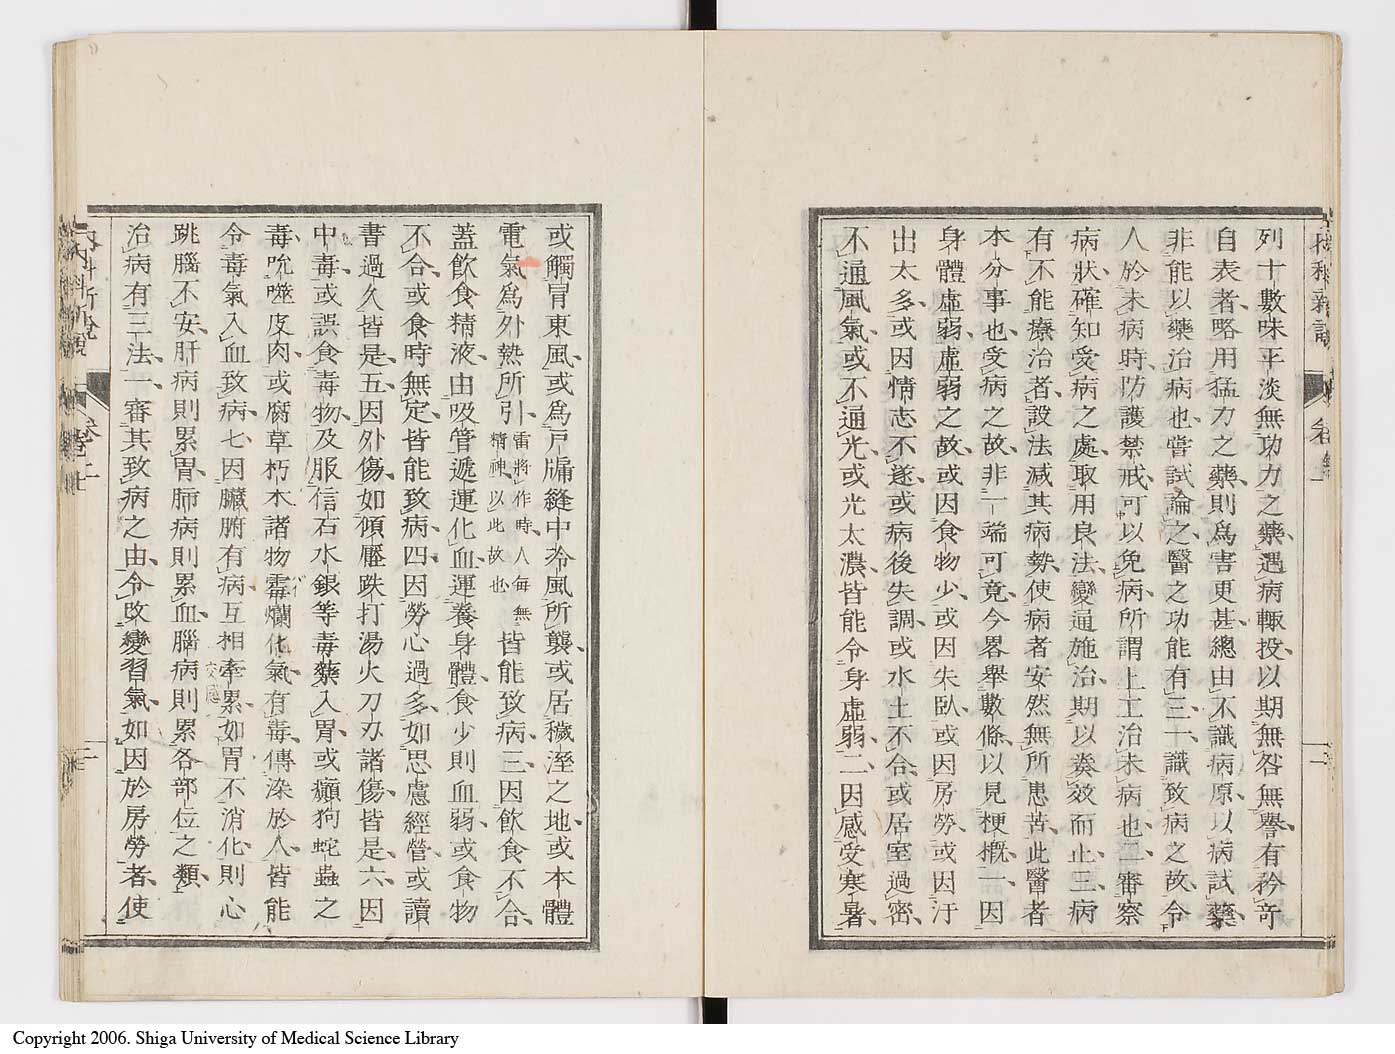 列十數味平淡無功力之藥遇病輒投以期無咎無譽有矜奇
自表者略用猛力之藥則爲害更甚總由不識病原以病試藥
非能以藥治病也嘗試論之醫之功能有三十識致病之故令
人於未病時防護禁戒可以免病所謂上工治未病也二審察
病狀確知受病之處取用良法變通施治期以奏效而止三病
有不能療治者設法減其病勢使病者安然無所患苦此醫者
本分事也受病之故非一端可竟今畧舉數條以見梗槪一因
身體虛弱虛弱之故或因食物少或因失臥或因房勞或因汗
出太多或因情志不遂或病後失調或水土不合或居室過密
不通風氣或不通光或光太濃皆能令身虛弱二因感受寒暑
或觸冒東風或爲戸牖縫中冷風所襲或居穢溼之地或本體
電氣爲外熱所引雷將作時人每無精神以此故也皆能致病三因飮食不合
蓋飮食精液由吸管遞運化血運養身體食少則血弱或食物
不合或食時無定皆能致病四因勞心過多如思慮經營或讀
書過久皆是五因外傷如傾壓跌打湯火刀刃諸傷皆是六因
中毒或誤食毒物及服信石水銀等毒藥入胃或癲狗蛇蟲之
毒吮噬皮肉或腐草朽木諸物霉爛化氣有毒傳染於人皆能
令毒氣入血致病七因臟腑有病互相牽累如胃不消化則心
交感
跳腦不安肝病則累胃肺病則累血腦病則累各部位之類
治病有三法一審其致病之由令改變習氣如因於房勞者使
內科新說
卷上
二
Copyright 2006. Shiga University of Medical Science Library